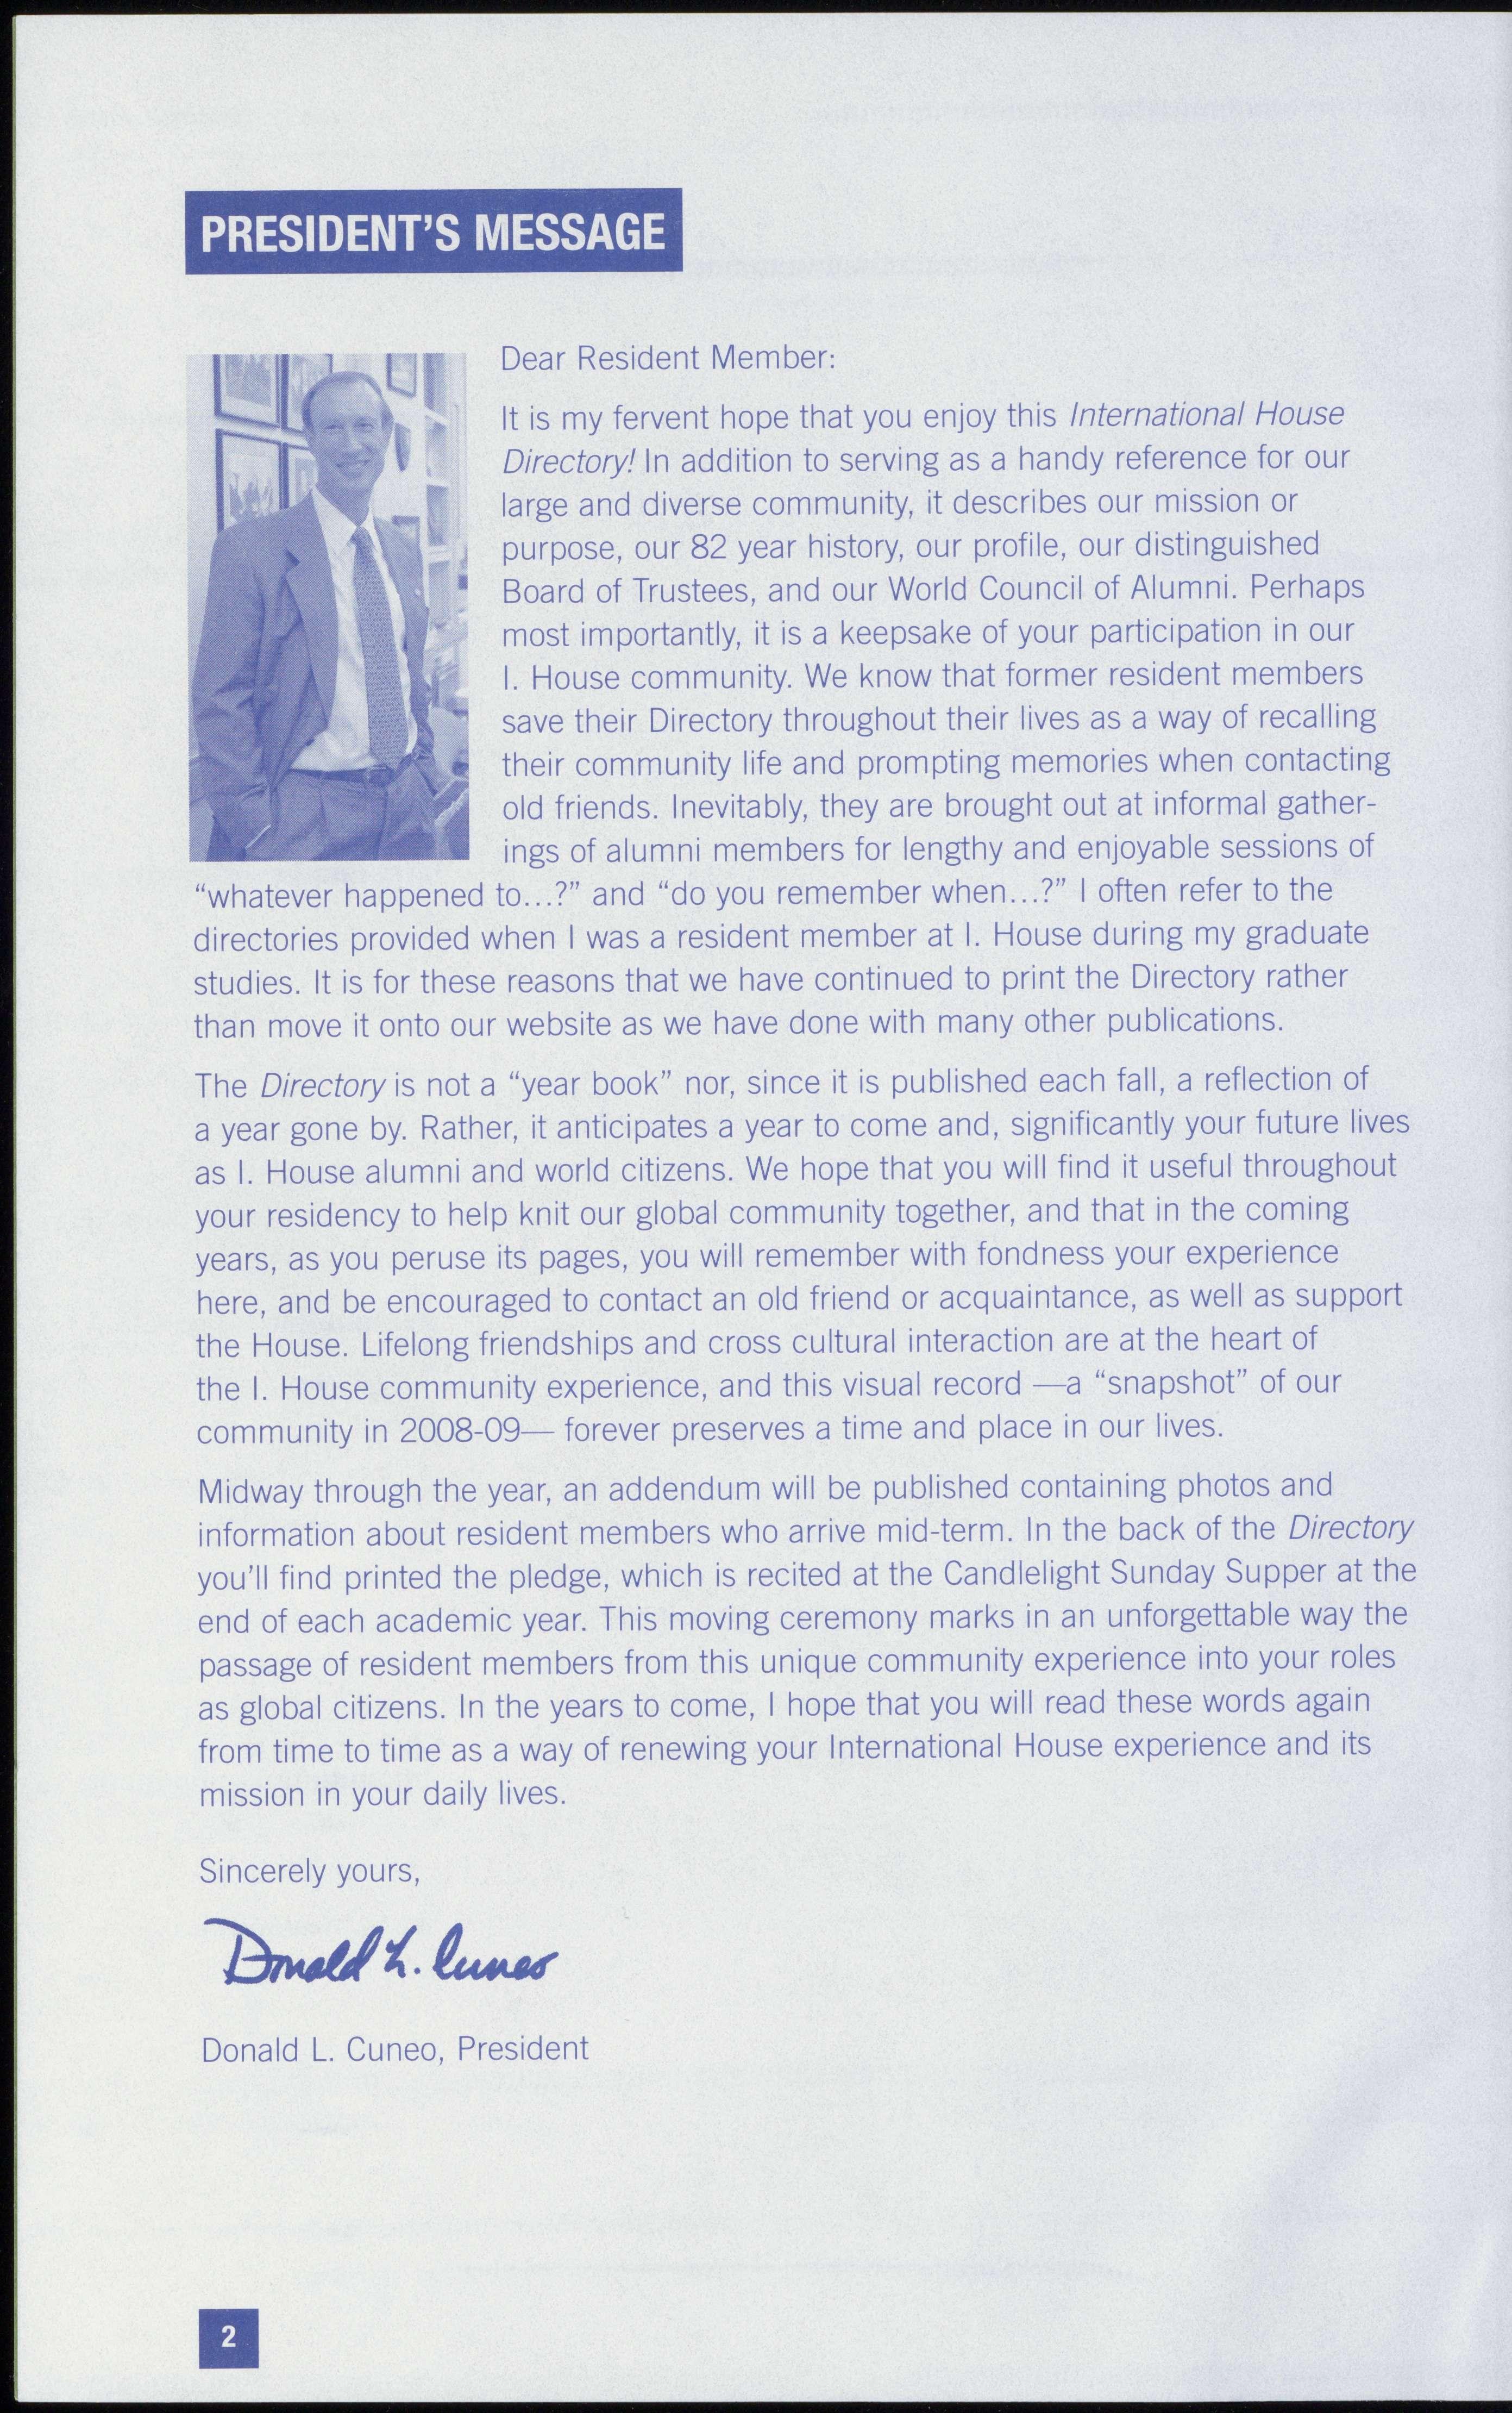 PRESIDENT’S MESSAGE
Dear Resident Member:
It is my fervent hope that you enjoy this International House
Directory! In addition to serving as a handy reference for our
large and diverse community, it describes our mission or
purpose, our 82 year history, our profile, our distinguished
Board of Trustees, and our World Council of Alumni. Perhaps
most importantly, it is a keepsake of your participation in our
I. House community. We know that former resident members
save their Directory throughout their lives as a way of recalling
their community life and prompting memories when contacting
old friends. Inevitably, they are brought out at informal gather-
ings of alumni members for lengthy and enjoyable sessions of
“whatever happened to…?” and “do you remember when…?” I often refer to the
directories provided when I was a resident member at I. House during my graduate
studies. It is for these reasons that we have continued to print the Directory rather
than move it onto our website as we have done with many other publications.
The Directory is not a “year book” nor, since it is published each fall, a reflection of
a year gone by. Rather, it anticipates a year to come and, significantly your future lives
as I. House alumni and world citizens. We hope that you will find it useful throughout
your residency to help knit our global community together, and that in the coming
years, as you peruse its pages, you will remember with fondness your experience
here, and be encouraged to contact an old friend or acquaintance, as well as support
the House. Lifelong friendships and cross cultural interaction are at the heart of
the I. House community experience, and this visual record —a “snapshot” of our
community in 2008-09— forever preserves a time and place in our lives.
Midway through the year, an addendum will be published containing photos and
information about resident members who arrive mid-term. In the back of the Directory
you’ll find printed the pledge, which is recited at the Candlelight Sunday Supper at the
end of each academic year. This moving ceremony marks in an unforgettable way the
passage of resident members from this unique community experience into your roles
as global citizens. In the years to come, I hope that you will read these words again
from time to time as a way of renewing your International House experience and its
mission in your daily lives.
Sincerely yours,
Donald L. Cuneo
Donald L. Cuneo, President
2